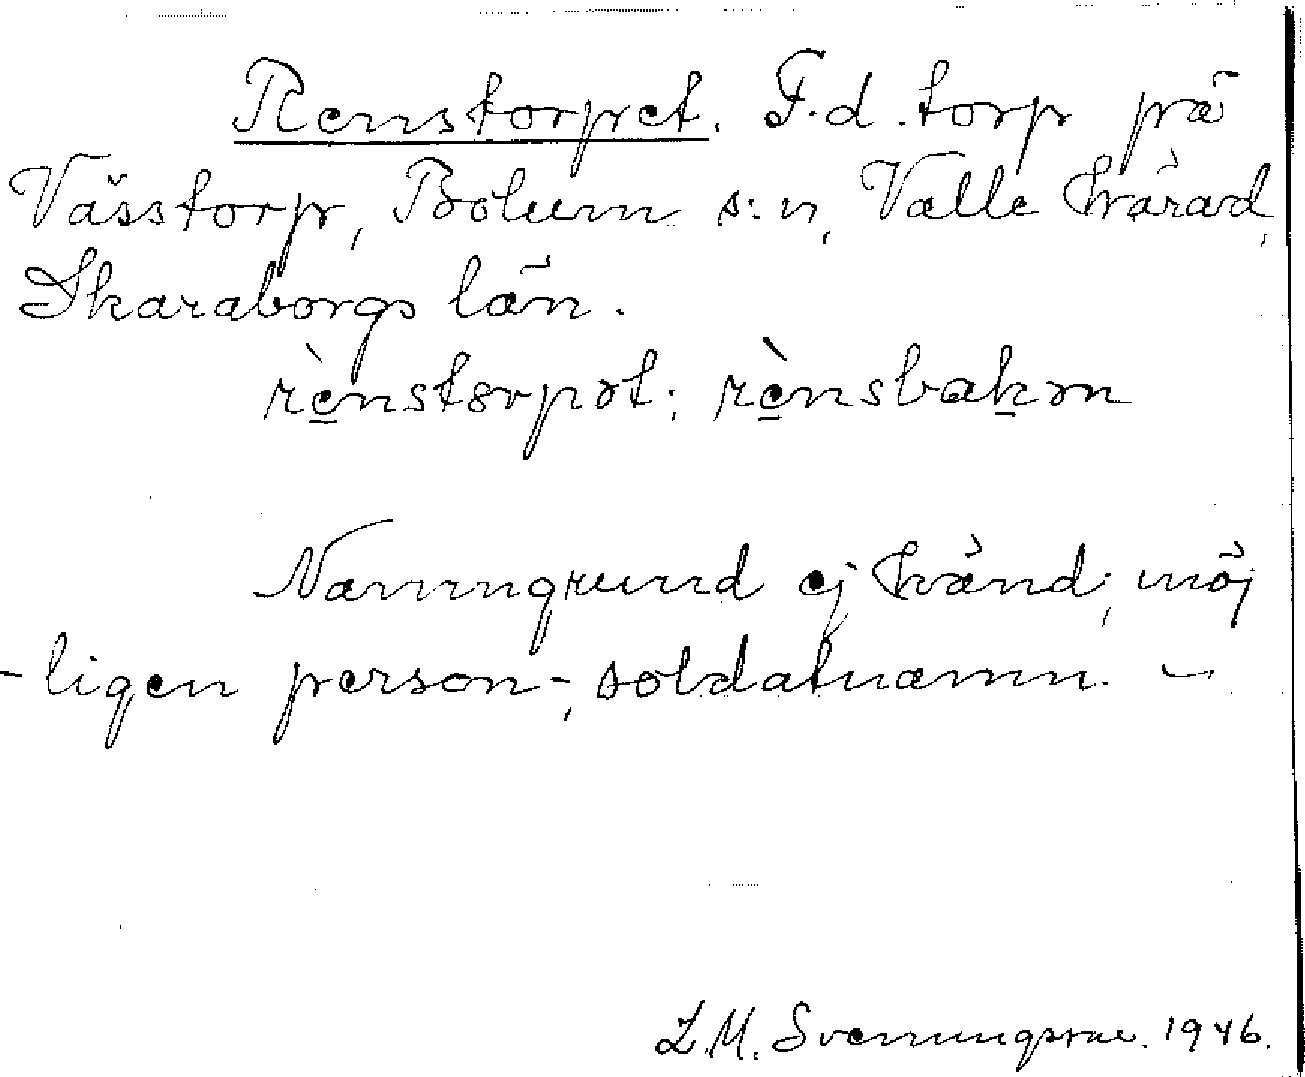 Renstorpet. F.d. torp på
Vässtorp, Bolum s:n, Valle härad,
Skaraborgs län.
rènstorpət; rènsbakən
Namngrund ej känd; möj
-ligen person-, soldatnamn. –
L.M. Svenungsson. 1946.